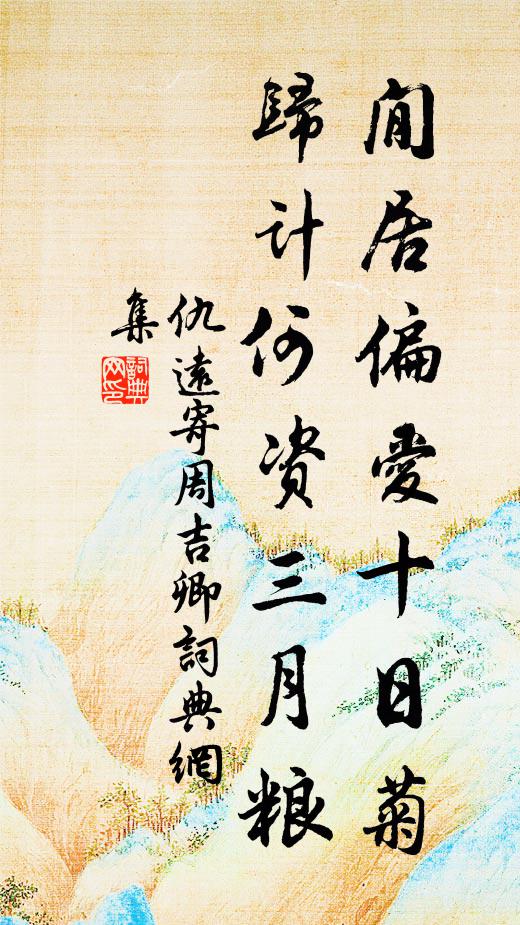 閒居偏愛十日菊
歸计何资三月粮
仇遠寄周吉卿詞典網
集
詞典網印